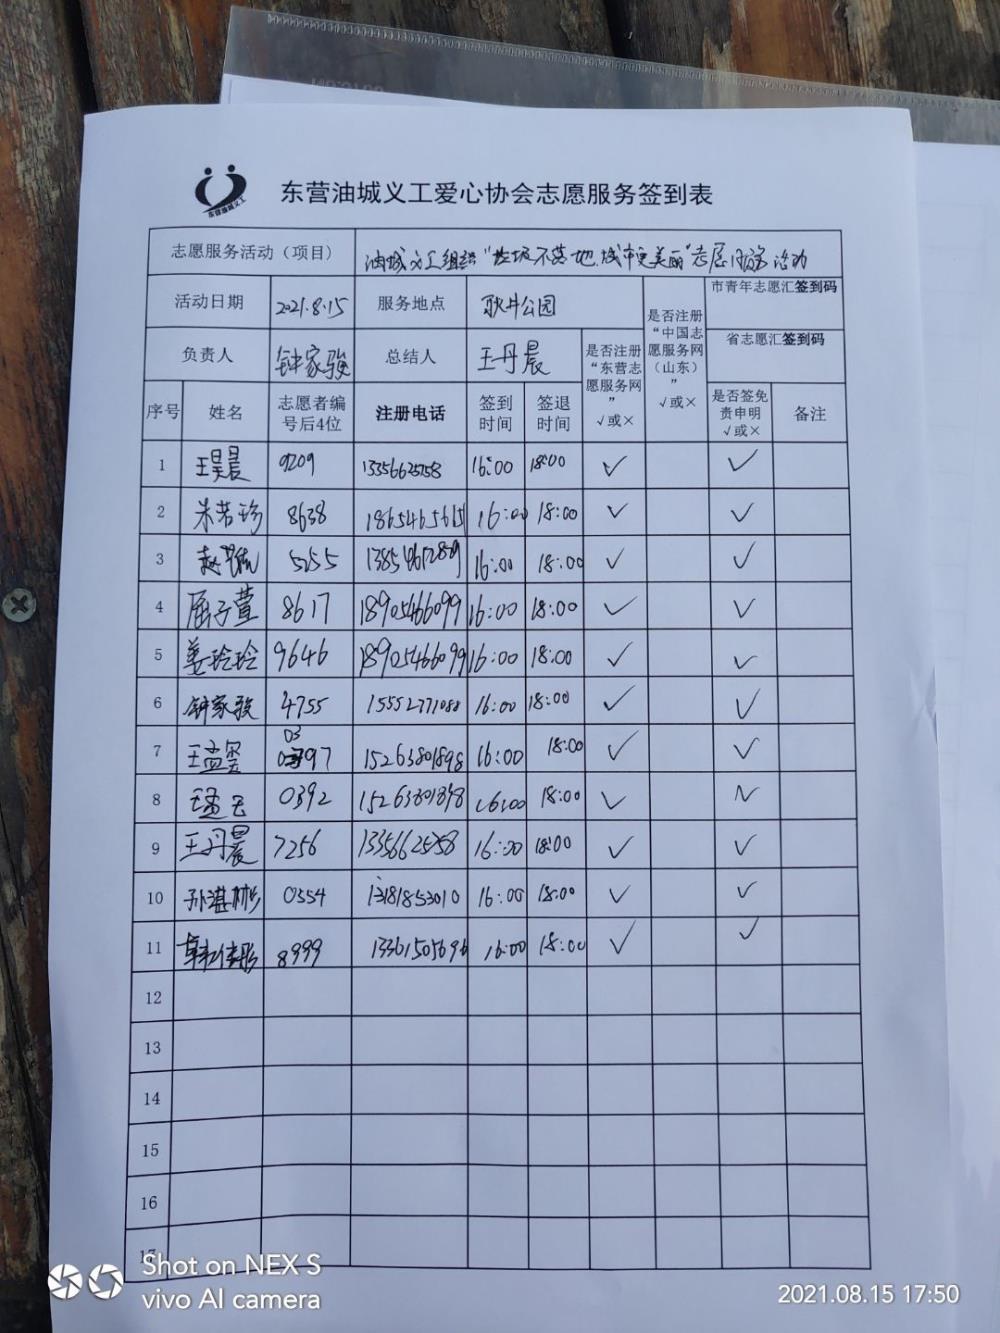 东营油城义工
东营油城义工爱心协会志愿服务签到表
志愿服务活动（项目） 油城义工组织“垃圾不落地.城市更美丽”志愿服务活动
活动日期 2021.8.15 服务地点 耿井公园 市青年志愿汇签到码
负责人 钟家骏 总结人 王丹晨 省志愿汇签到码
是否注册“东营志愿服务网” √或×
是否注册“中国志愿服务网（山东）” √或×
序号 姓名 志愿者编号后4位 注册电话 签到时间 签退时间 是否签免责申明 √或× 备注
1 王昊晨 9209 13356625758 16:00 18:00 ✓ ✓
2 朱若珍 8638 1865465615 16:00 18:00 ✓ ✓
3 赵 5255 16:00 18:00 ✓ ✓
4 屈子萱 8617 18905466099 16:00 18:00 ✓ ✓
5 姜玲玲 9646 18905466099 16:00 18:00 ✓ ✓
6 钟家骏 4755 15552771088 16:00 18:00 ✓ ✓
7 王孟玺 0397 15263801898 16:00 18:00 ✓ ✓
8 0392 15263801898 16:00 18:00 ✓ ✓
9 王丹晨 7256 13356625758 16:00 18:00 ✓ ✓
10 孙湛彬 0354 13181853010 16:00 18:00 ✓ ✓
11 韩佳彤 8999 13361505696 16:00 18:00 ✓ ✓
12
13
14
15
16
17
Shot on NEX S
vivo AI camera
2021.08.15 17:50